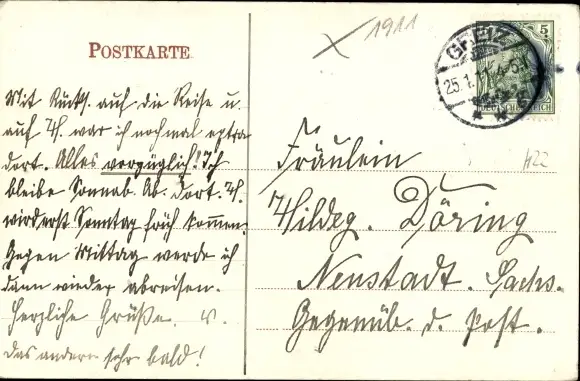 POSTKARTE
1911
GREIZ
25.1.11.4-5N.
5
DEUTSCHES REICH
Mit Rücks. auf die Reise u.
auf H. war ich nochmal extra
dort. Alles vorzüglich! Ich
bleibe Sonnab. Ab. dort. H.
wird erst Sonntag früh kommen.
Gegen Mittag werde ich
dann wieder abreisen.
Herzliche Grüße. v.
das andere sehr bald!
Fräulein
Hildeg. Döring
Neustadt. Sachs.
Gegenüb. d. Post.